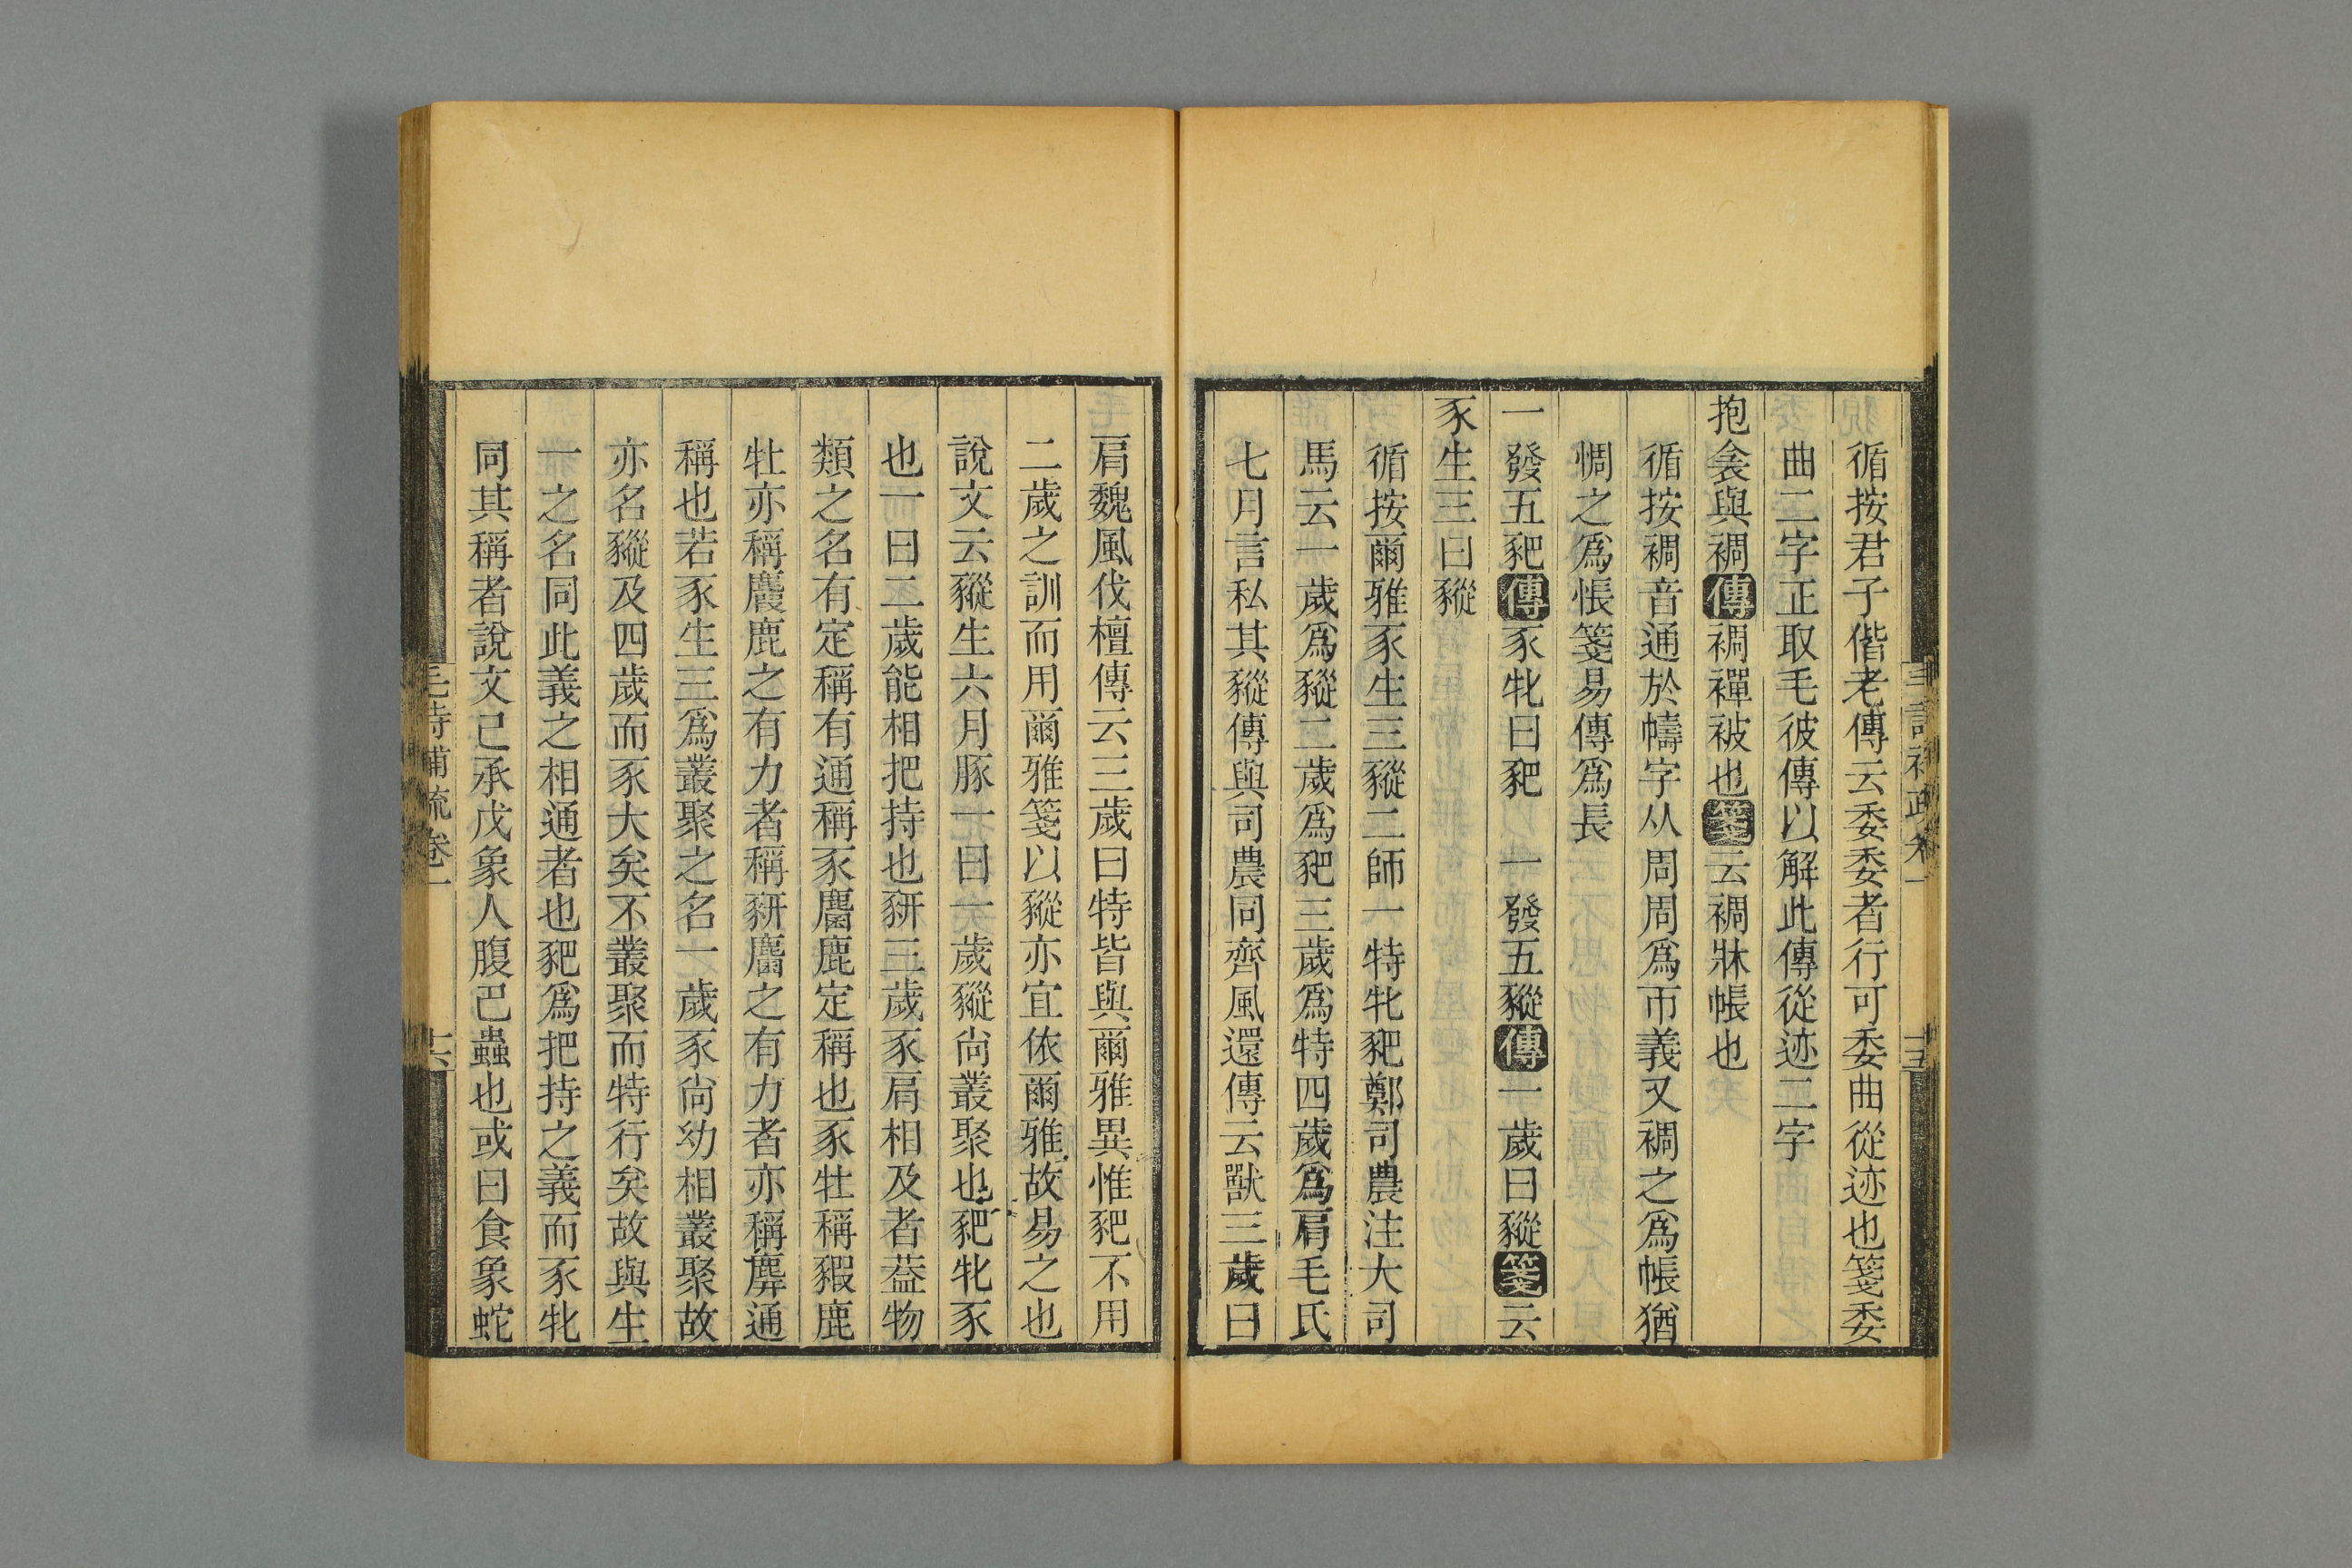 循按君子偕老傳云委委者行可委曲從迹也箋委
曲二字正取毛彼傳以解此傳從迹二字
抱衾與裯傳裯襌被也箋云裯牀帳也
循按裯音通於幬字从周周爲帀義又裯之爲帳猶
惆之爲悵箋易傳爲長
一發五豝傳豕牝曰豝 一發五豵傳一歲曰豵箋云
豕生三曰豵
循按爾雅豕生三豵二師一特牝豝鄭司農注大司
馬云一歲爲豵二歲爲豝三歲爲特四歲爲肩毛氏
七月言私其豵傳與司農同齊風還傳云獸三歲曰
肩魏風伐檀傳云三歲曰特皆與爾雅異惟豝不用
二歲之訓而用爾雅箋以豵亦宜依爾雅故易之也
說文云豵生六月豚一曰一歲豵尙叢聚也豝牝豕
也一曰二歲能相把持也豜三歲豕肩相及者葢物
類之名有定稱有通稱豕麕鹿定稱也豕牡稱豭鹿
牡亦稱麚鹿之有力者稱豜麕之有力者亦稱麉通
稱也若豕生三爲叢聚之名一歲豕尙幼相叢聚故
亦名豵及四歲而豕大矣不叢聚而特行矣故與生
一之名同此義之相通者也豝爲把持之義而豕牝
同其稱者說文己承戊象人腹巴蟲也或曰食象蛇
毛詩補疏卷一
十六
十五